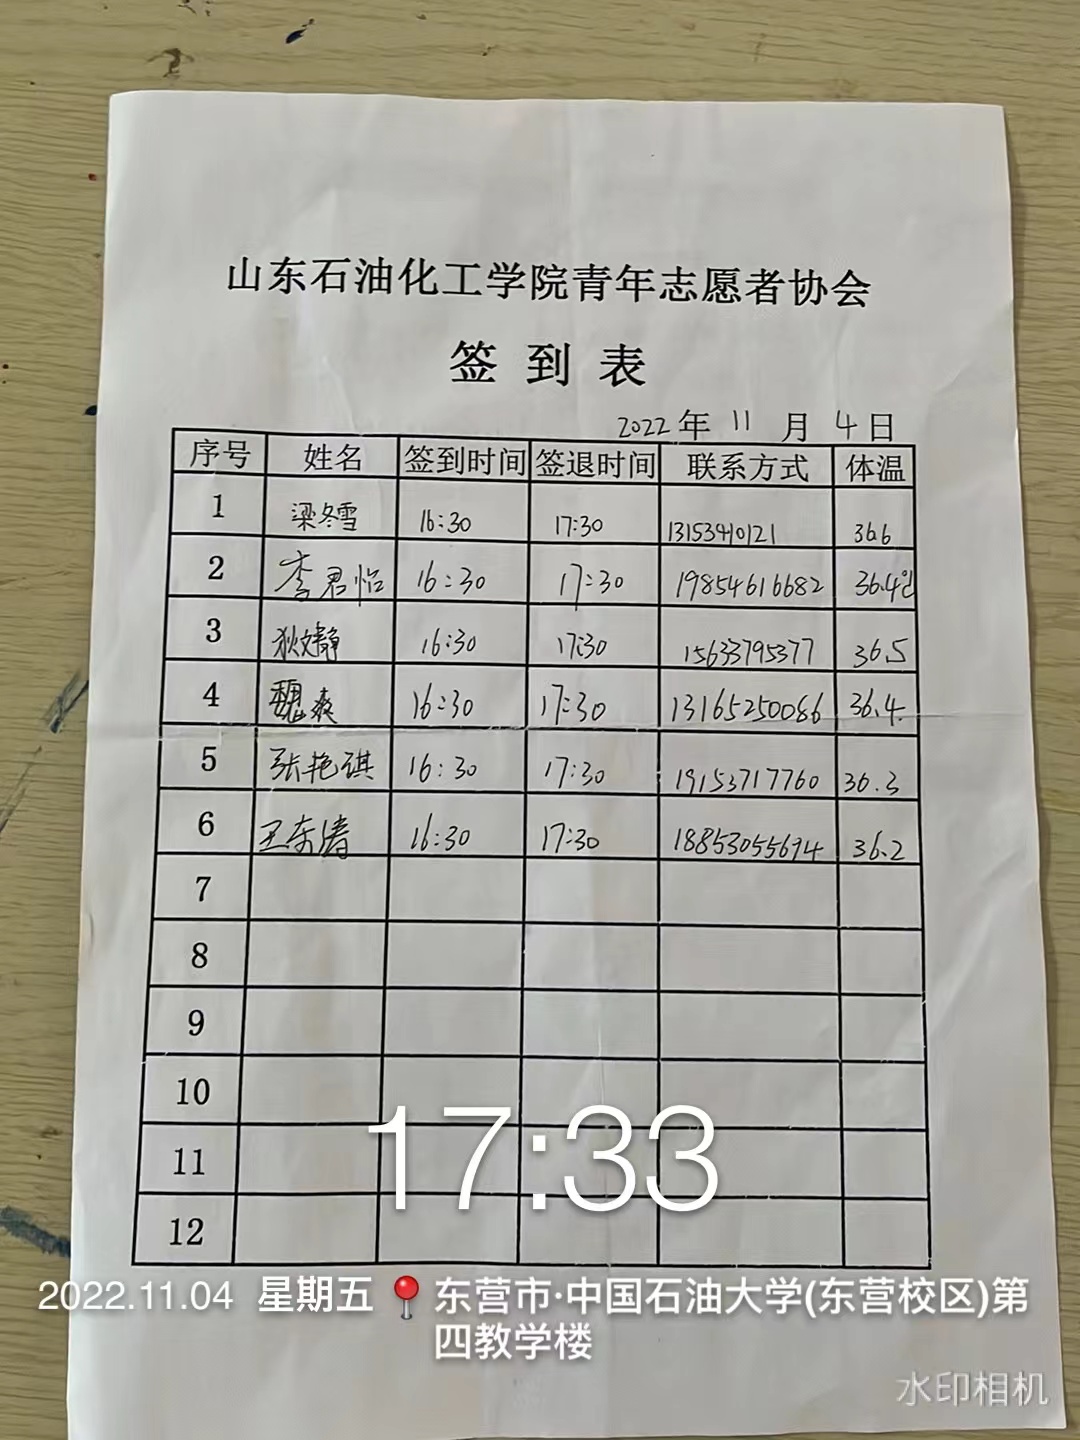 山东石油化工学院青年志愿者协会
签到表
2022年11月4日
序号 姓名 签到时间 签退时间 联系方式 体温
1 梁冬雪 16:30 17:30 13153410121 36.6
2 李君怡 16:30 17:30 19854616682 36.4℃
3 狄文静 16:30 17:30 15633795377 36.5
4 魏爽 16:30 17:30 13165250086 36.4
5 张艳琪 16:30 17:30 19153717760 36.3
6 王东涛 16:30 17:30 18853055694 36.2
7
8
9
10
11
12
17:33
2022.11.04 星期五 东营市·中国石油大学(东营校区)第
四教学楼
水印相机